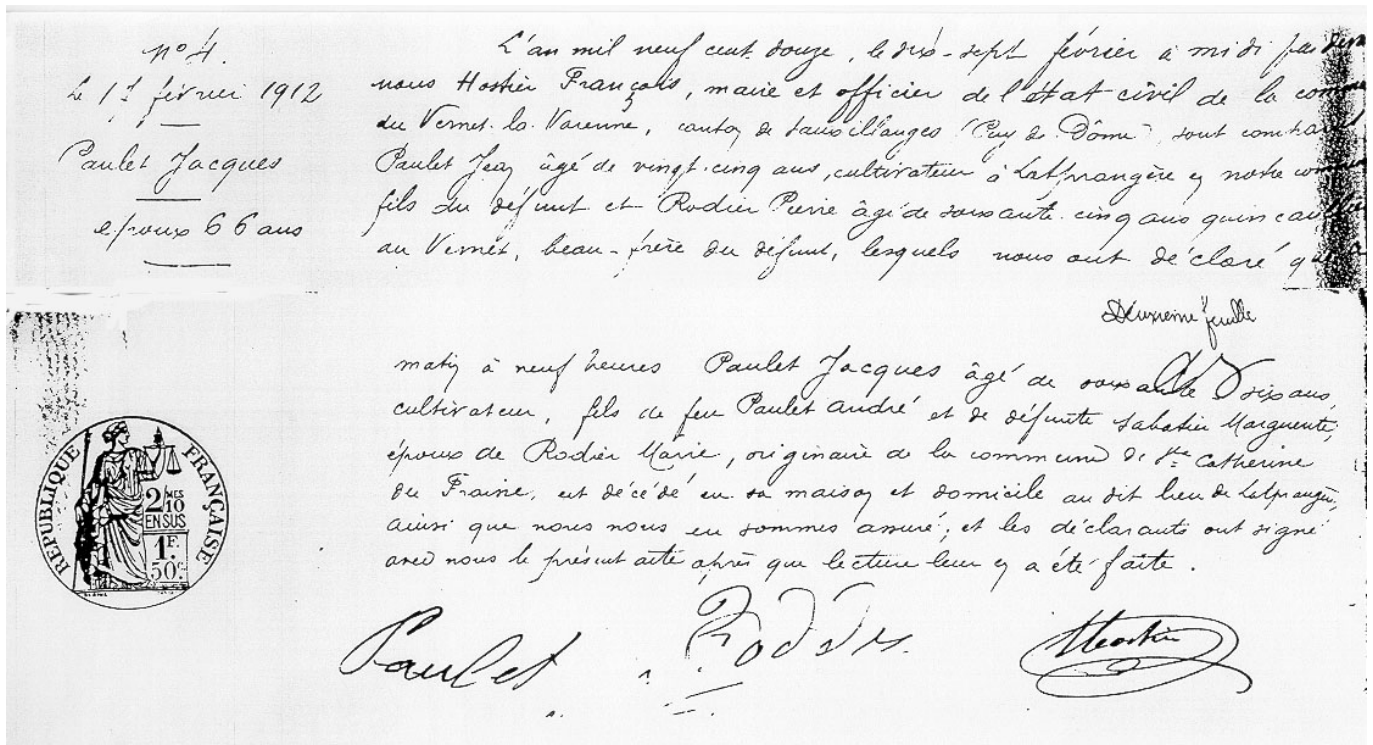 n° 4.
Le 17 février 1912
Paulet Jacques
époux 66 ans
L'an mil neuf cent douze, le dix-sept février à midi par
nous Hostier François, maire et officier de l'état civil de la
du Vernet-la-Varenne, canton de Sauxillanges (Puy de Dôme) sont
Paulet Jean âgé de vingt-cinq ans, cultivateur à en notre
fils du défunt et Rodier Pierre âgé de soixante-cinq ans
au Vernet, beau-frère du défunt, lesquels nous ont déclaré
Deuxième feuille
matin à neuf heures Paulet Jacques âgé de soixante six ans,
cultivateur, fils de feu Paulet André et de défunte Sabatier Marguerite,
époux de Rodier Marie, originaire de la commune de Ste Catherine
du Fraine, est décédé en sa maison et domicile au dit lieu de
ainsi que nous nous en sommes assuré; et les déclarants ont signé
avec nous le présent acte après que lecture leur en a été faite.
Paulet Rodier Hostier
REPUBLIQUE FRANÇAISE
2/10 MES
EN SUS
1F.
50c